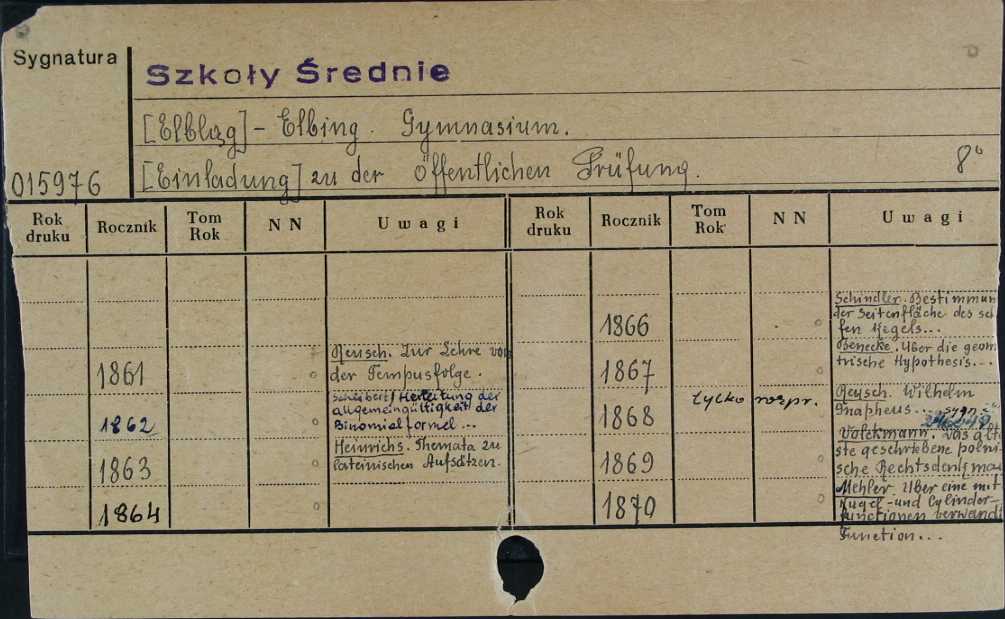 Sygnatura
Szkoły Średnie
[Elbląg] - Elbing. Gymnasium.
015976
[Einladung] zu der öffentlichen Prüfung. 8°
Rok druku Rocznik Tom Rok N N Uwagi Rok druku Rocznik Tom Rok N N Uwagi
1861
Reusch. Zur Lehre von
der Tempusfolge.
1862
Scheibert/Herleitung der
allgemeingültigkeit der
Binomialformel...
1863
Heinrichs. Themata zu
lateinischen Aufsätzen.
1864
1866
Schindler. Bestimmun
der Seitenfläche des sch
fen Kegels...
1867
Benecke. Über die geom
trische Hypothesis...
1868 tylko rozpr.
Reusch. Wilhelm
Gnapheus... sygn.
1869
Volckmann. Das ält
ste geschriebene polni
sche Rechtsdenkmal
1870
Mehler. Über eine mit
Kugel- und Cylinder-
functionen verwandt
Function...